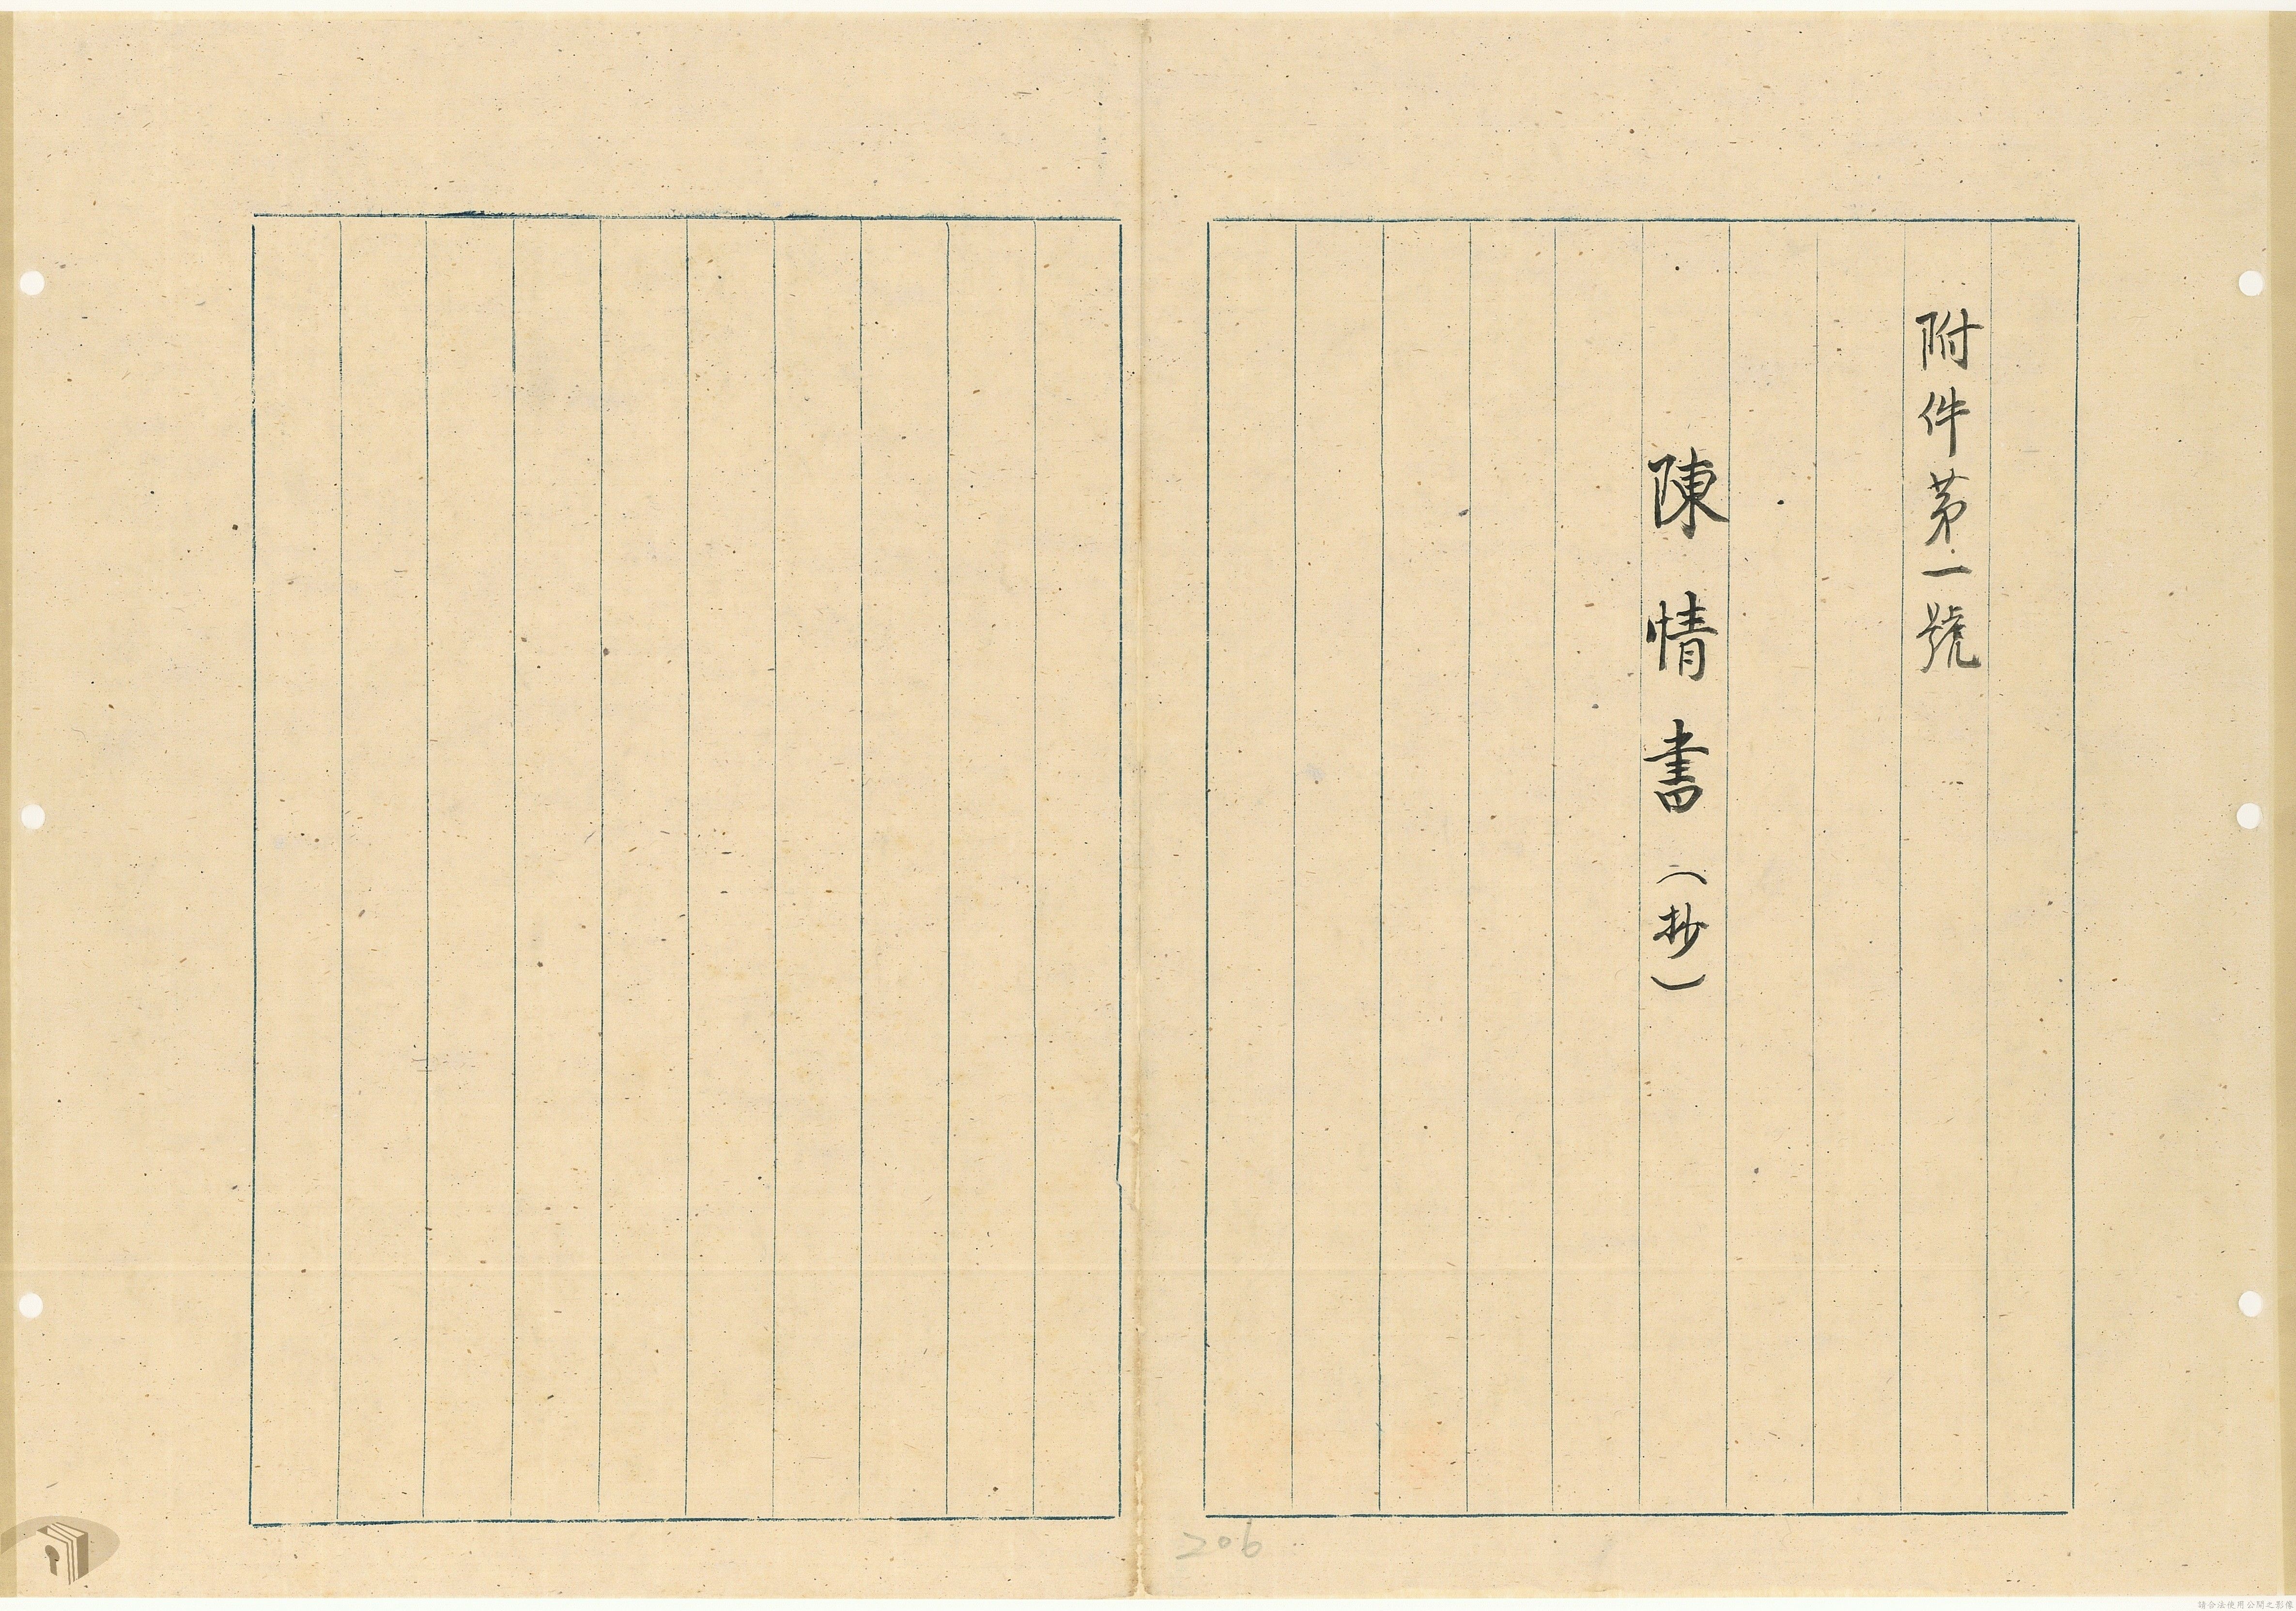 附件第一號
陳情書（抄）
206
請合法使用公開之影像